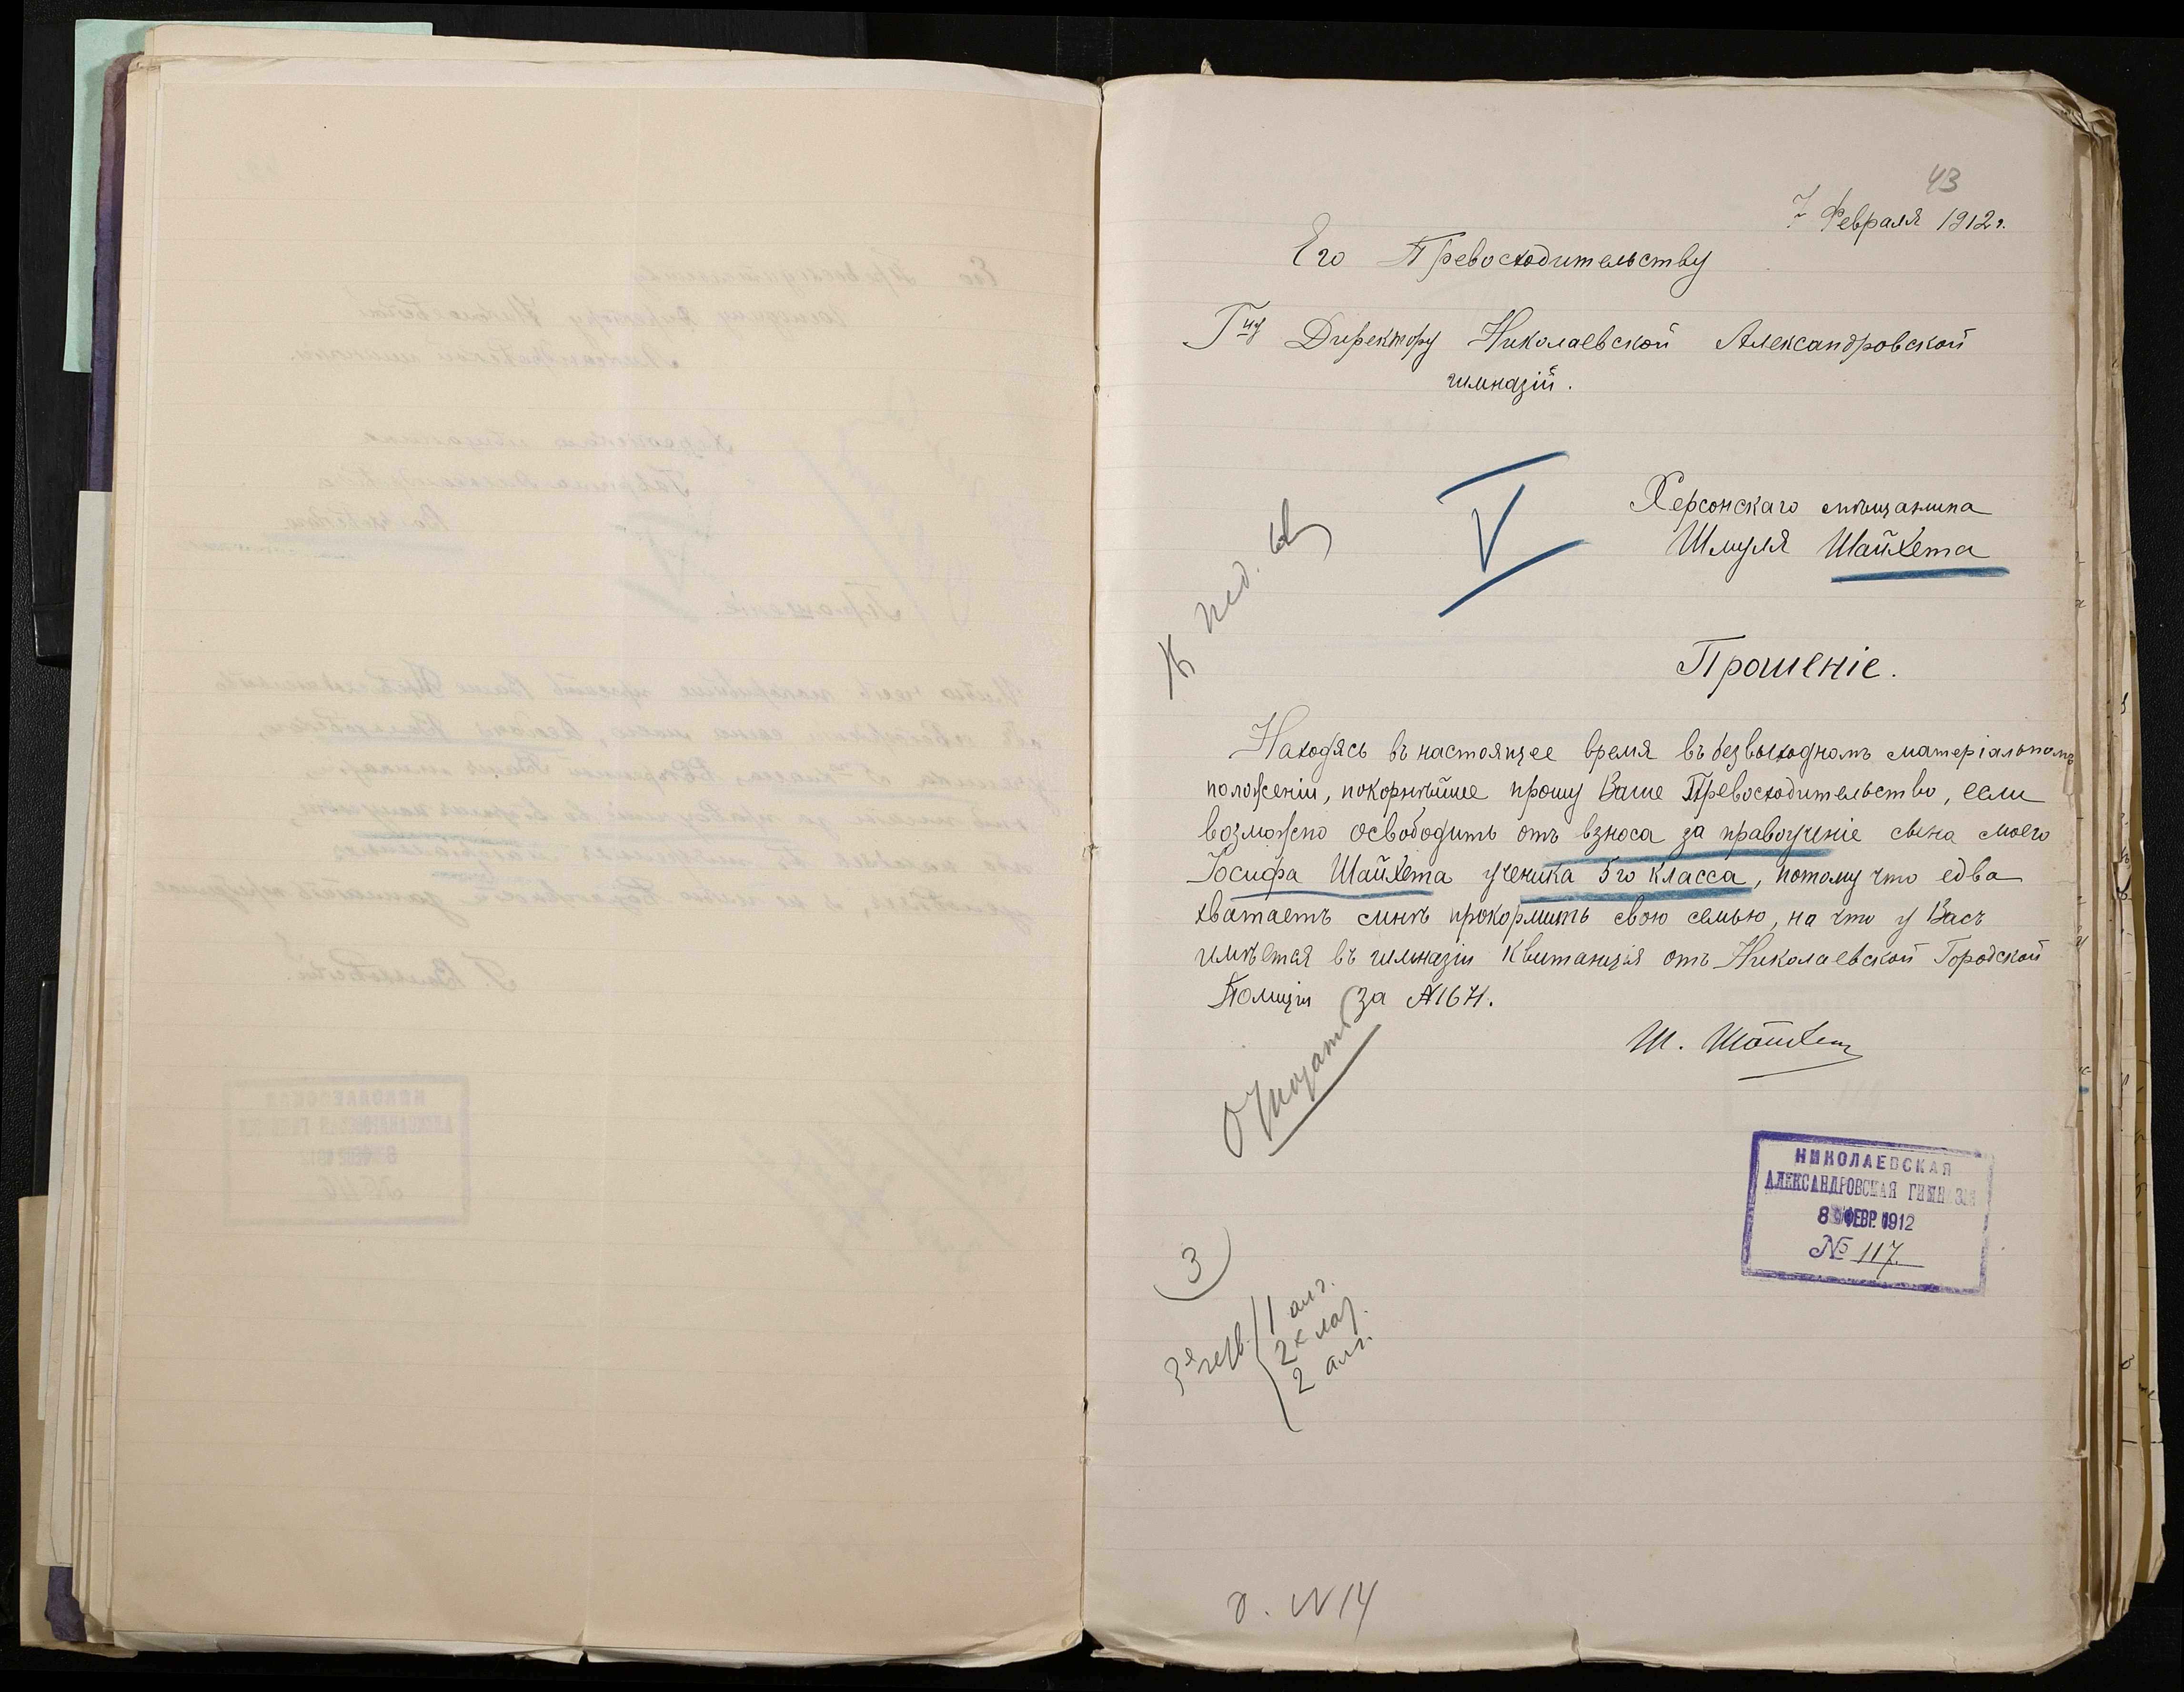 43
7 Февраля 1912 г.
Его Превосходительству
Гну Директору Николаевской Александровской
гимназіи.
V
Херсонскаго мѣщанина
Шмуля Шайхета
Прошеніе.
Находясь въ настоящее время въ безвыходномъ матеріальномъ
положеніи, покорнѣйше прошу Ваше Превосходительство, если
возможно освободить отъ взноса за правоученіе сына моего
Іосифа Шайхета ученика 5го класса, потому что едва
хватаетъ мнѣ прокормить свою семью, на что у Васъ
имѣется въ гимназіи квитанція отъ Николаевской Городской
Полиціи за №164.
Ш. Шайхет
Отказать
НИКОЛАЕВСКАЯ
АЛЕКСАНДРОВСКАЯ ГИМНАЗІЯ
8 ФЕВР. 1912
№ 117.
3
3я четв.
1 алг.
2 алг.
д. N 14